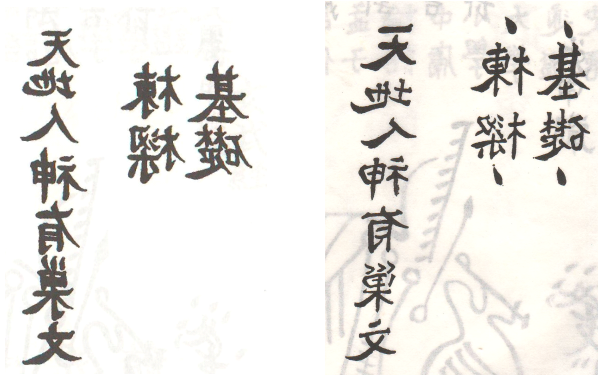 基礎
棟樑
天地人神有巢文
基礎
棟樑
天地人神有巢文